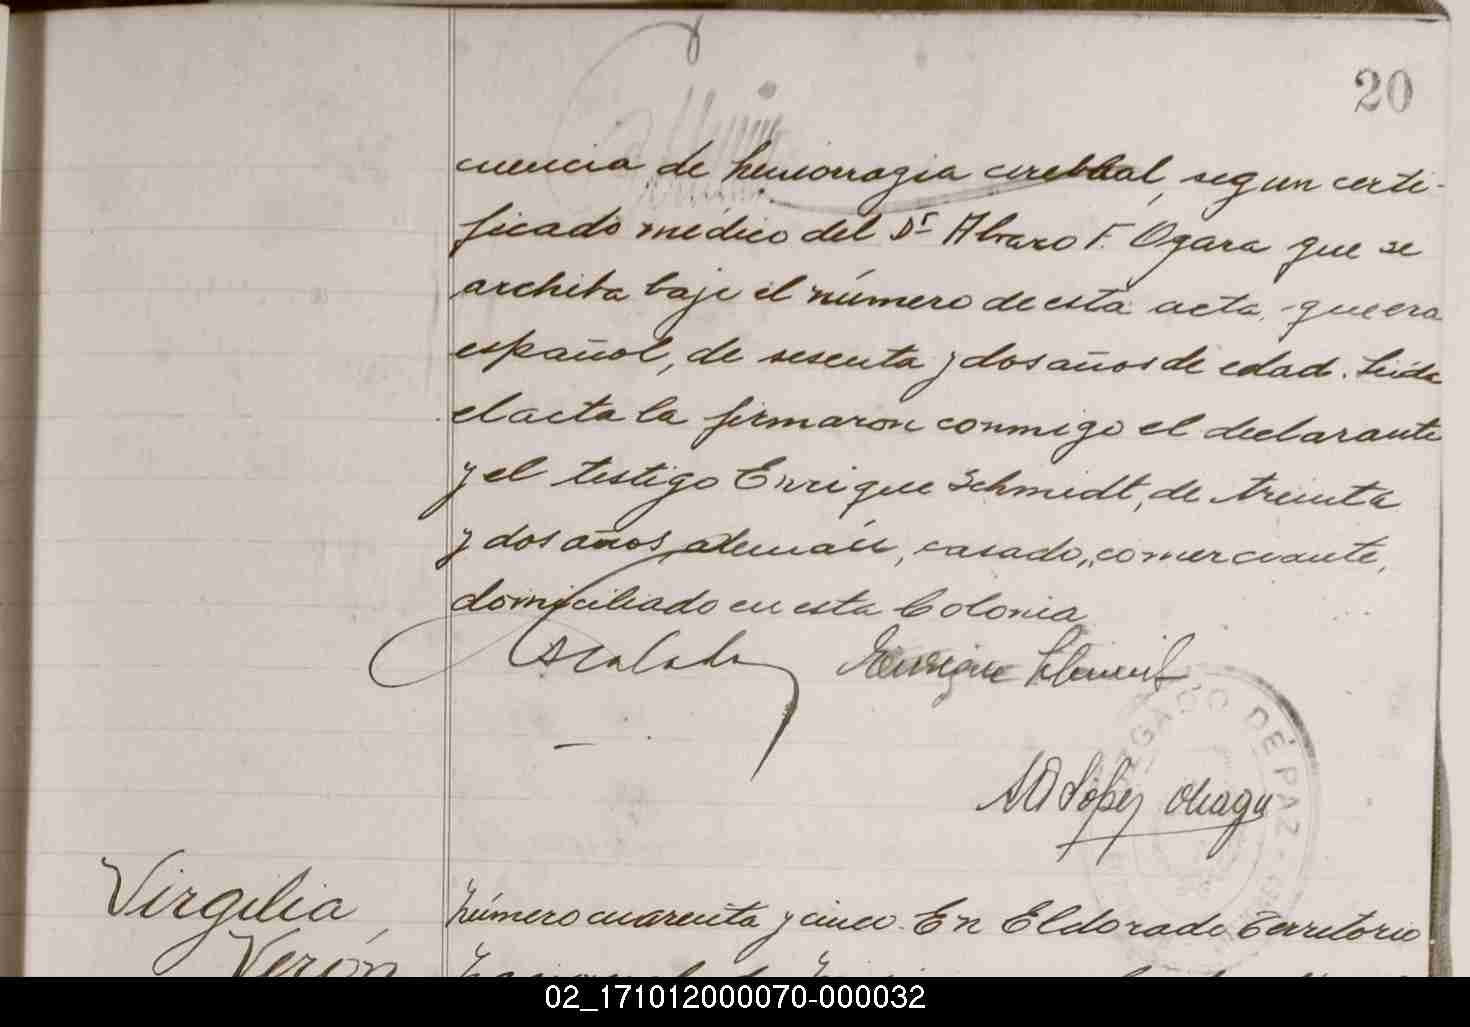 20
cuencia de hemorragia cerebral, segun certi-
ficado médico del Dr Alvaro F. Ogara que se
archiba bajo el número de esta acta, que era
español, de sesenta y dos años de edad. Leida
el acta la firmaron conmigo el declarante
y el testigo Enrique Schmidt, de treinta
y dos años, alemán, casado, comerciante,
domiciliado en esta Colonia
Enrique Schmidt
JUZGADO DE PAZ
López
Virgilia
Verón
Número cuarenta y cinco. En Eldorado Territorio
02_171012000070-000032